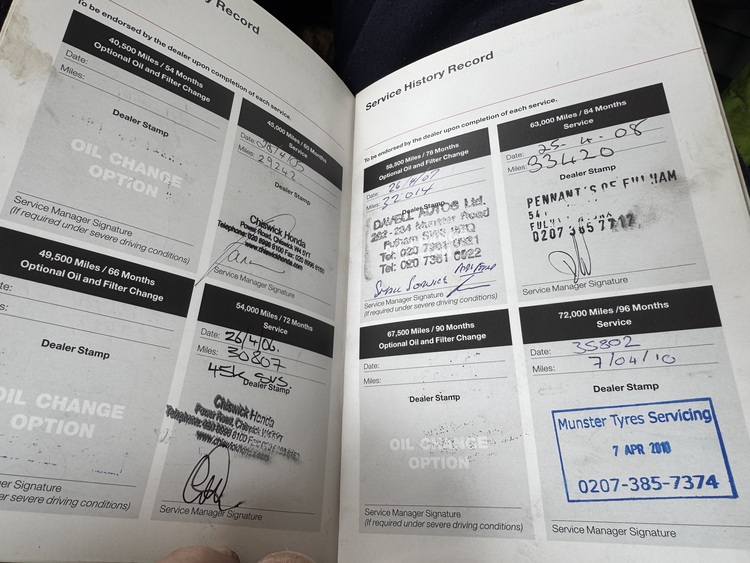 ry Record
To be endorsed by the dealer upon completion of each service.
40,500 Miles / 54 Months
Optional Oil and Filter Change
Date:
Miles:
Dealer Stamp
OIL CHANGE
OPTION
Service Manager Signature
(If required under severe driving conditions)
45,000 Miles / 60 Months
Service
Date:
Miles: 29242
Dealer Stamp
Chiswick Honda
Power Road, Chiswick W4 5YT
Telephone: 020 8996 8100 Fax: 020 8996 8150
www.chiswickhonda.com
Service Manager Signature
49,500 Miles / 66 Months
Optional Oil and Filter Change
Dealer Stamp
OIL CHANGE
OPTION
Service Manager Signature
er severe driving conditions)
54,000 Miles / 72 Months
Service
Date: 26/4/06.
Miles: 30807
45K SVS
Dealer Stamp
Chiswick Honda
Power Road, Chiswick
Telephone: 020 8996 8100
Service Manager Signature
Service History Record
To be endorsed by the dealer upon completion of each service.
58,500 Miles / 78 Months
Optional Oil and Filter Change
Date: 26/4/07
Miles: 32014
Dealer Stamp
AUTOS Ltd.
Munster Road
Fulham
Tel: 020 7381
Tel: 020 7381
Service Manager Signature
(If required under severe driving conditions)
63,000 Miles / 84 Months
Service
Date: 25-4-08
Miles: 33420
Dealer Stamp
PENNANT'S OF FULHAM
0207 385 7712
Service Manager Signature
67,500 Miles / 90 Months
Optional Oil and Filter Change
Date:
Miles:
Dealer Stamp
OIL CHANGE
OPTION
Service Manager Signature
(If required under severe driving conditions)
72,000 Miles /96 Months
Service
Date: 35802
Miles: 7/04/10
Dealer Stamp
Munster Tyres Servicing
7 APR 2010
0207-385-7374
Service Manager Signature